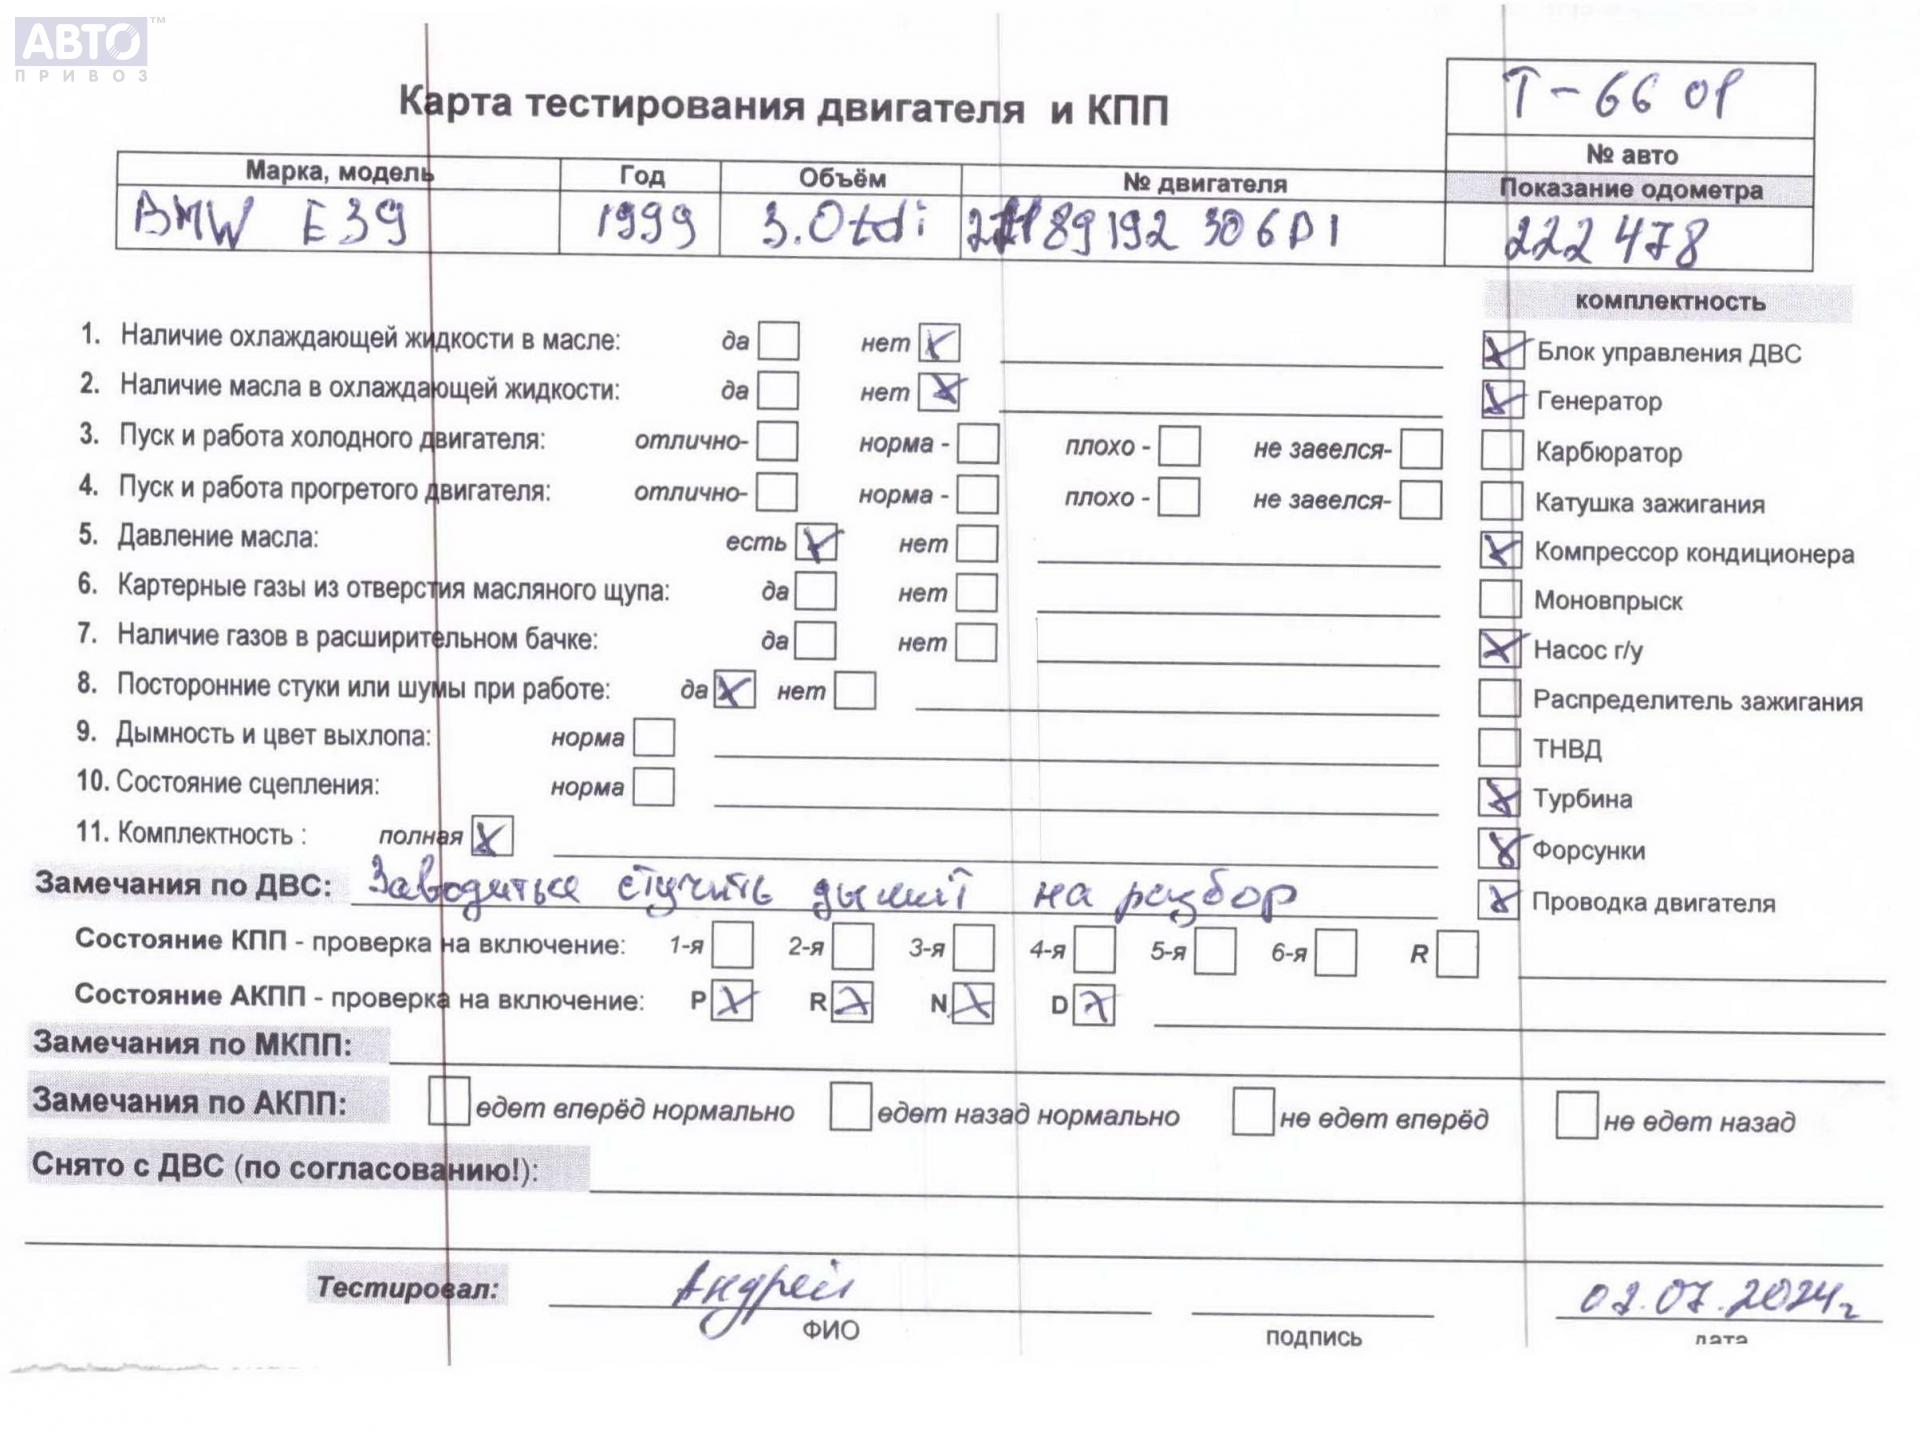 АВТО™
ПРИВОЗ
Карта тестирования двигателя и КПП
Т-66 01
№ авто
Марка, модель Год Объём № двигателя Показание одометра
BMW E39 1999 3.0tdi 89192 306D1 222 478
комплектность
1. Наличие охлаждающей жидкости в масле: да нет
Блок управления ДВС
2. Наличие масла в охлаждающей жидкости: да нет
Генератор
3. Пуск и работа холодного двигателя: отлично- норма - плохо - не завелся-
Карбюратор
4. Пуск и работа прогретого двигателя: отлично- норма - плохо - не завелся-
Катушка зажигания
5. Давление масла: есть нет
Компрессор кондиционера
6. Картерные газы из отверстия масляного щупа: да нет
Моновпрыск
7. Наличие газов в расширительном бачке: да нет
Насос г/у
8. Посторонние стуки или шумы при работе: да нет
Распределитель зажигания
9. Дымность и цвет выхлопа: норма
ТНВД
10. Состояние сцепления: норма
Турбина
11. Комплектность : полная
Форсунки
Замечания по ДВС: Заводиться стучить дымит на разбор
Проводка двигателя
Состояние КПП - проверка на включение: 1-я 2-я 3-я 4-я 5-я 6-я R
Состояние АКПП - проверка на включение: P R N D
Замечания по МКПП:
Замечания по АКПП: едет вперёд нормально едет назад нормально не едет вперёд не едет назад
Снято с ДВС (по согласованию!):
Тестировал: Андрей 02.07.2024г
ФИО подпись дата